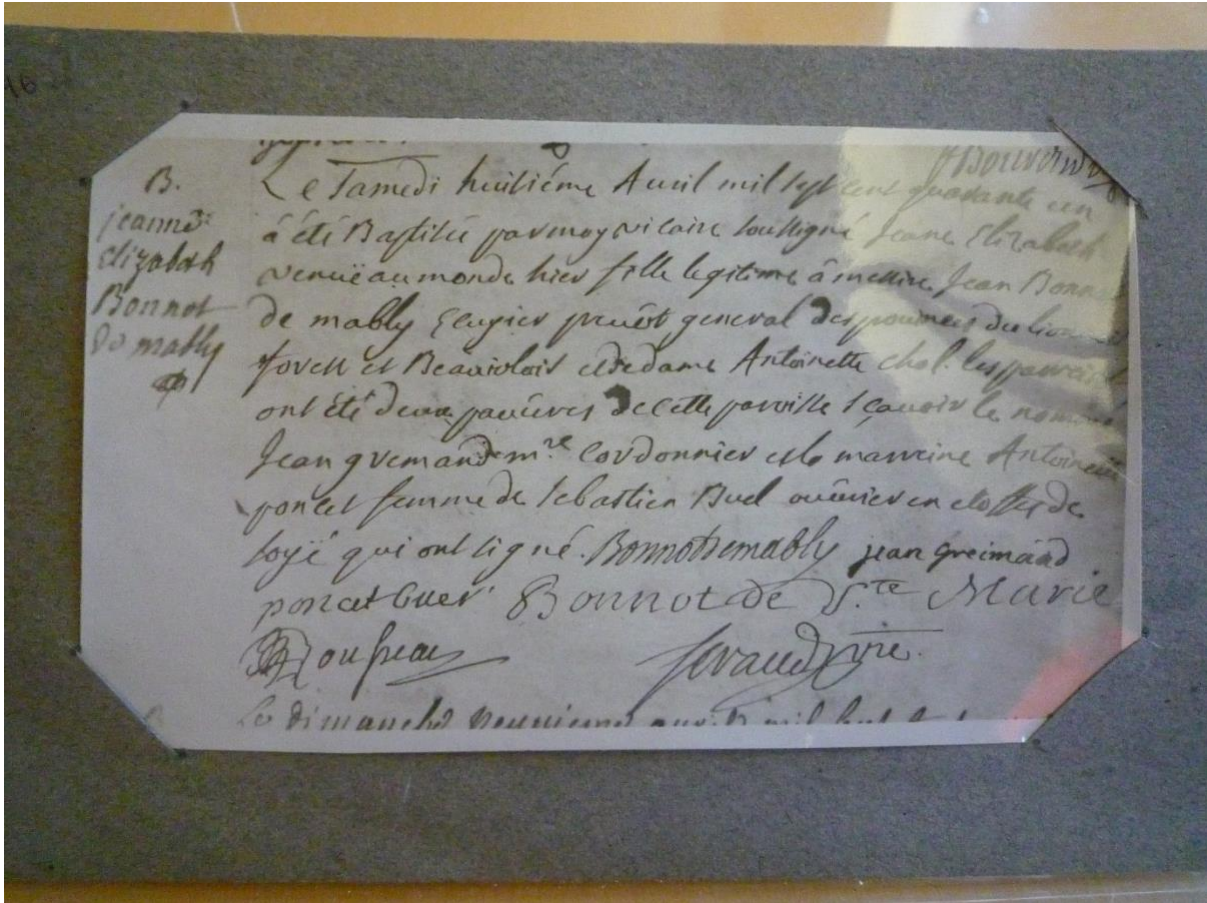 16
B.
jeanne
Elizabeth
Bonnot
de mably
Le Samedi huitiéme Avril mil sept cent quarante un
à été Baptisée par moy vicaire soussigné Jeane Elizabeth
venüe au monde hier fille legitime à messire Jean Bonnot
de mably Ecuyier prevôt general des
forest et Beaujolois et de dame Antoinette chol. les
ont été deux pauvres de cette paroisse sçavoir le nommé
Jean gremand m.re Cordonnier et la marreine Antoinette
poncet femme de Sebastien Buel ouvrier en etoffes de
soyë qui ont signé. Bonnot de mably jean greimand
poncet Buer Bonnot de S.te Marie
Rousseau
vire.
Le dimanche neuvieme avril mil sept